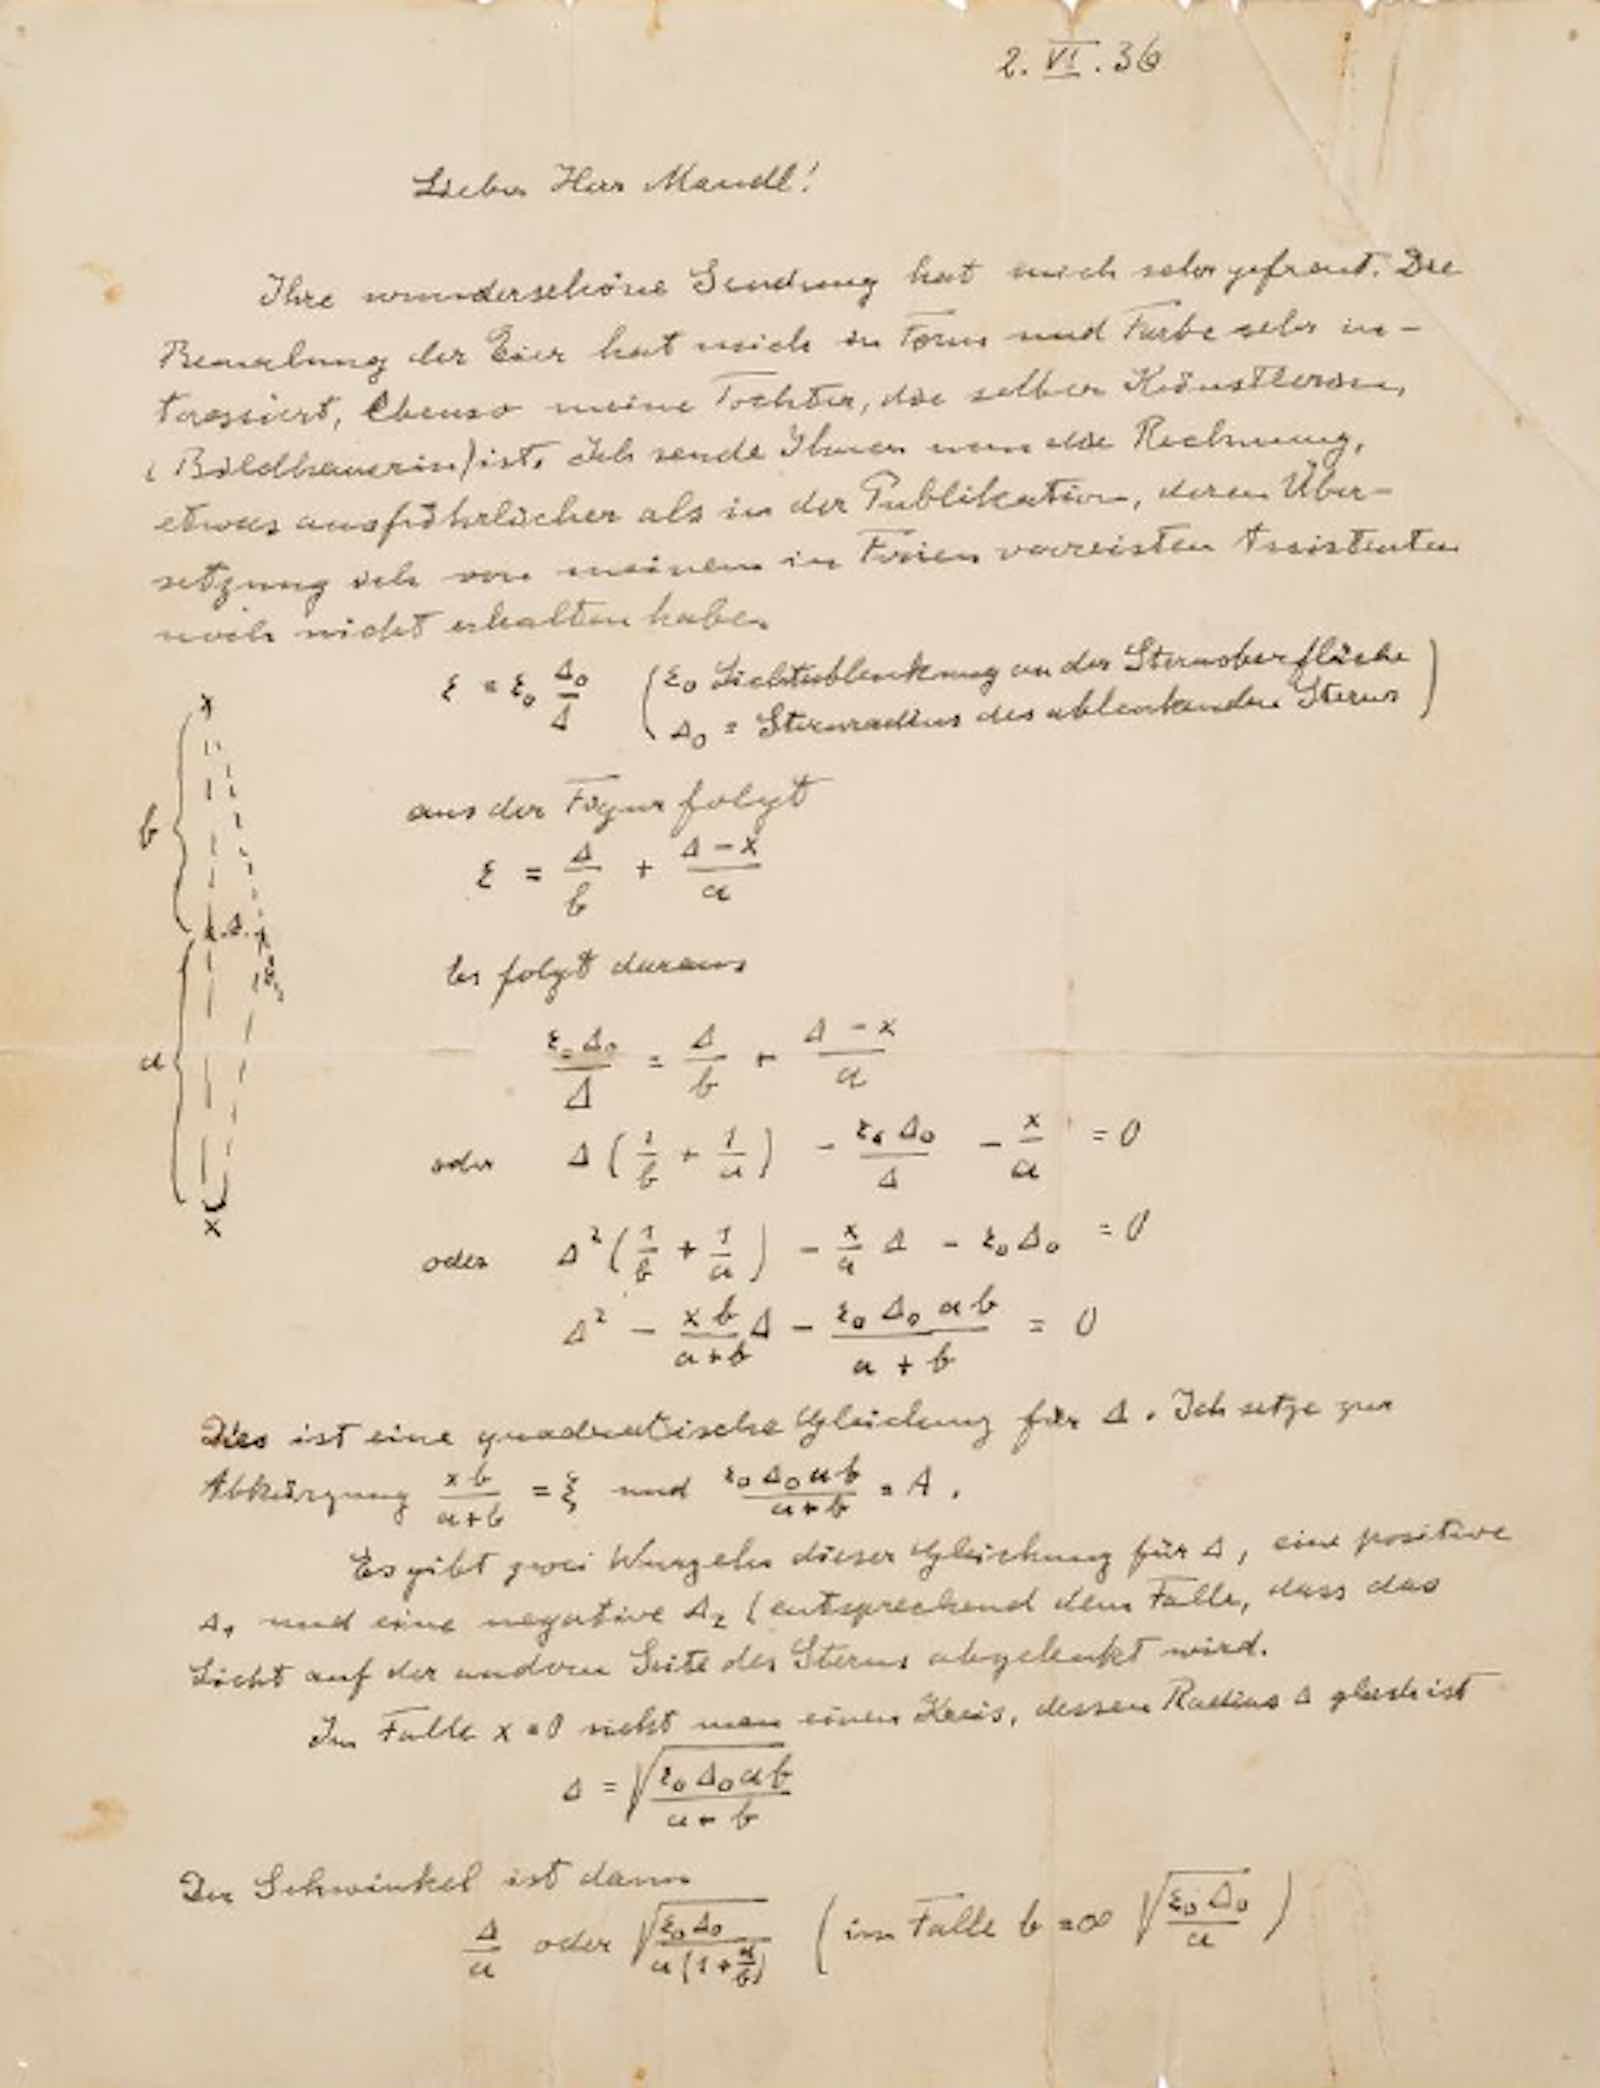 2. VI. 36
Lieber Herr Mandl!
Ihre wunderschöne Sendung hat mich sehr gefreut. Die
Bemalung der Eier hat mich in Form und Farbe sehr in-
teressiert, ebenso meine Tochter, die selber Künstlerin,
(Bildhauerin) ist. Ich sende Ihnen nun die Rechnung,
etwas ausführlicher als in der Publikation, deren Über-
setzung ich von meinem in Ferien verreisten Assistenten
noch nicht erhalten habe.
ε = ε₀ Δ₀/Δ (ε₀ Lichtablenkung an der Sternoberfläche
Δ₀ = Sternradius des ablenkenden Sterns)
x
b
Δ
a
x
aus der Figur folgt
ε = Δ/b + (Δ - x)/a
Es folgt daraus
ε₀ Δ₀/Δ = Δ/b + (Δ - x)/a
oder Δ (1/b + 1/a) - ε₀ Δ₀/Δ - x/a = 0
oder Δ² (1/b + 1/a) - x/a Δ - ε₀ Δ₀ = 0
Δ² - x b/(a + b) Δ - ε₀ Δ₀ a b/(a + b) = 0
Dies ist eine quadratische Gleichung für Δ. Ich setze zur
Abkürzung x b/(a + b) = ξ und ε₀ Δ₀ a b/(a + b) = A.
Es gibt zwei Wurzeln dieser Gleichung für Δ, eine positive
Δ₁ und eine negative Δ₂ (entsprechend dem Falle, dass das
Licht auf der andern Seite des Sterns abgelenkt wird.
Im Falle x = 0 sieht man einen Kreis, dessen Radius Δ gleich ist
Δ = √(ε₀ Δ₀ a b/(a + b))
Der Sehwinkel ist dann
Δ/a oder √(ε₀ Δ₀/(a (1 + a/b))) (im Falle b = ∞ √(ε₀ Δ₀/a))